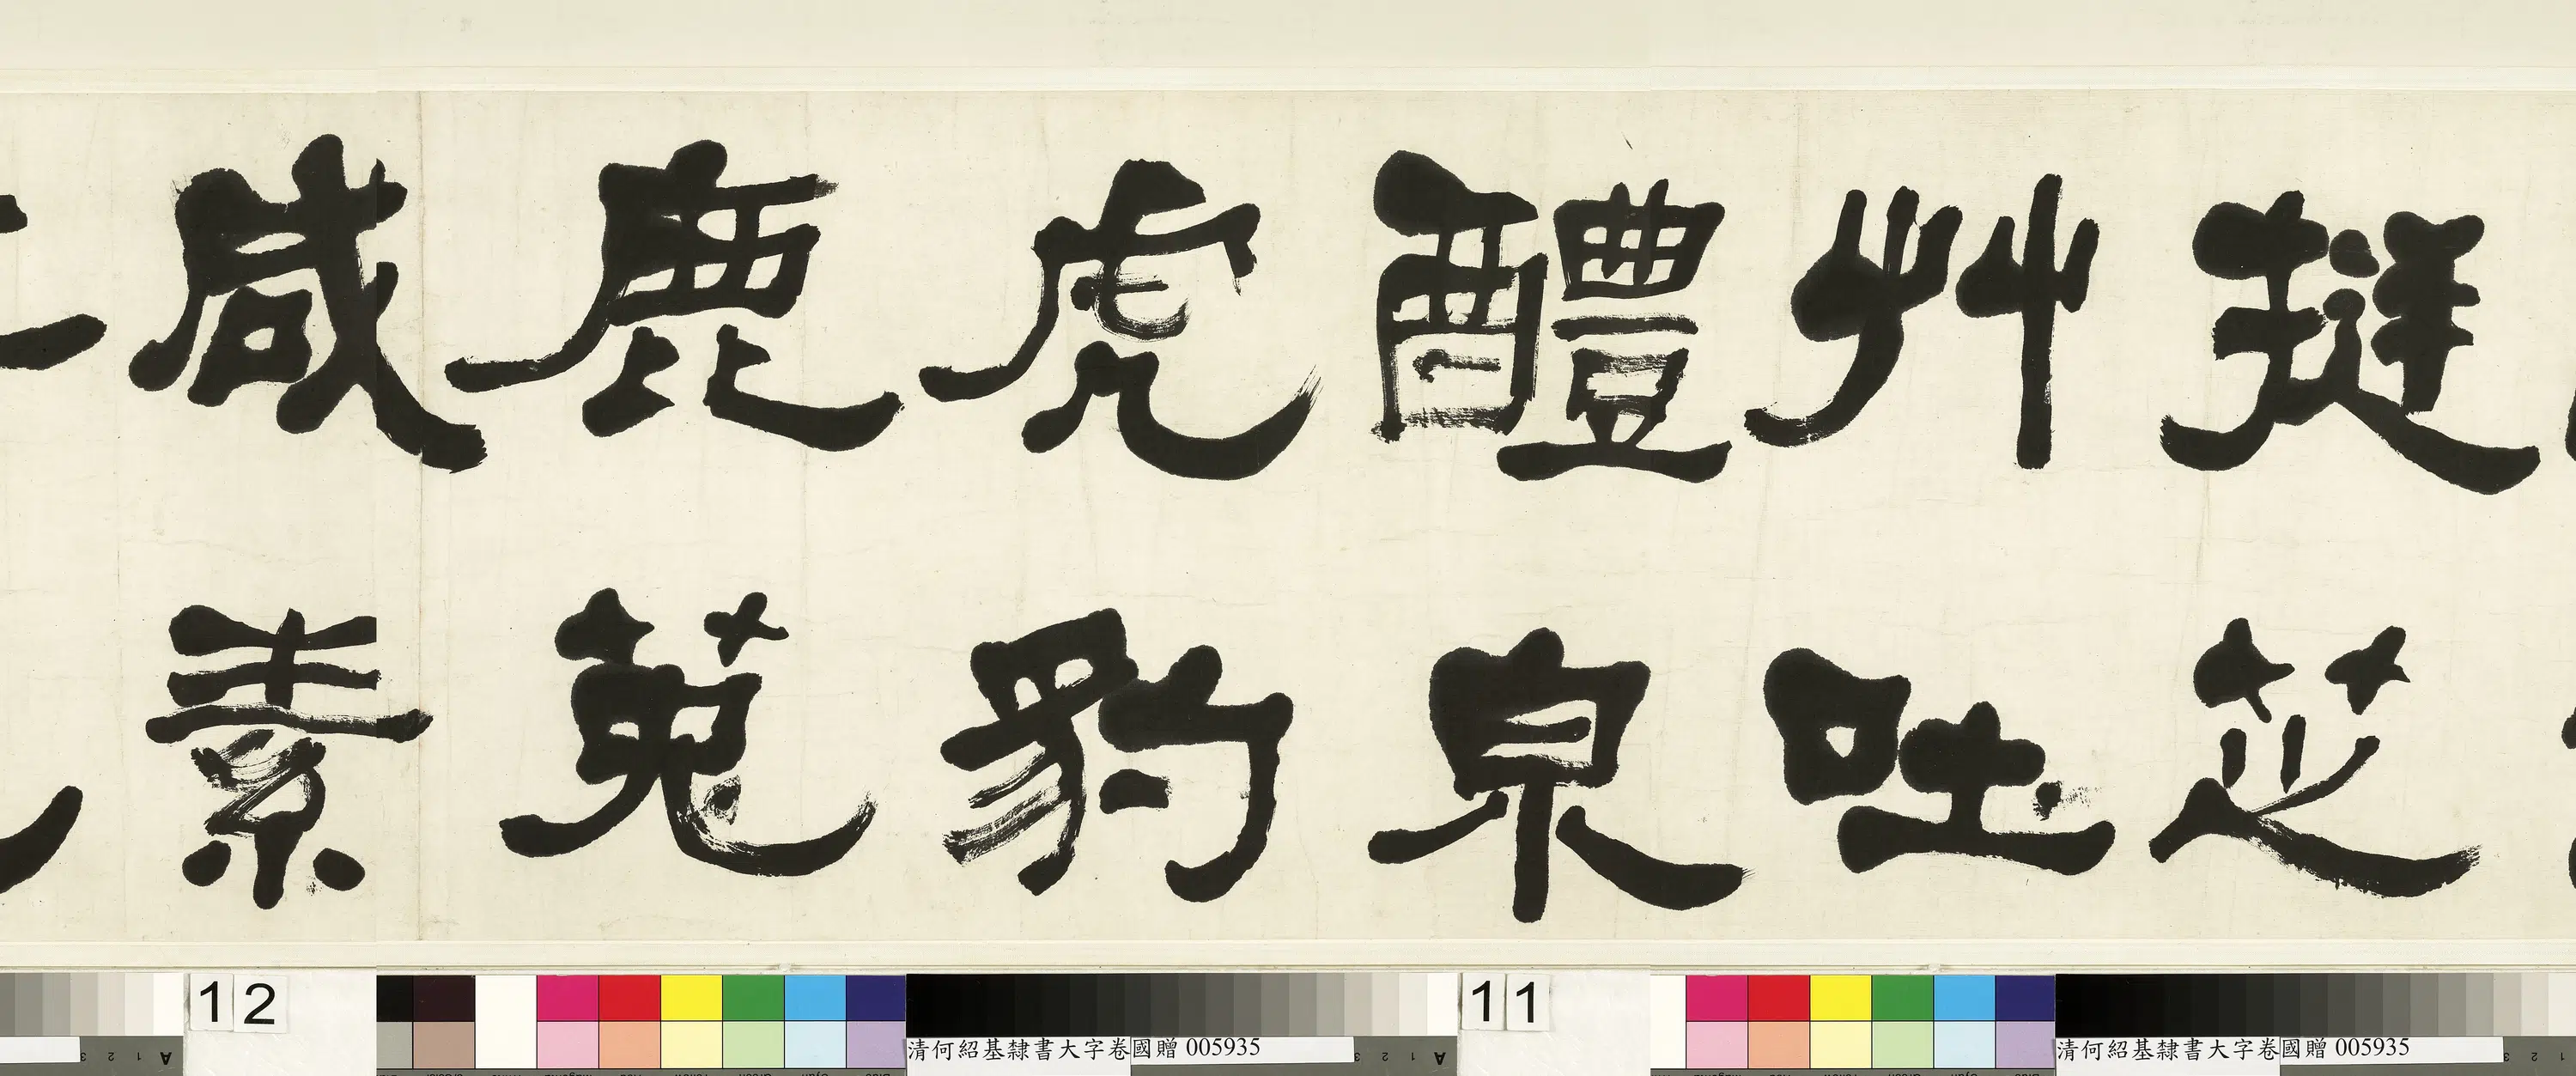 挺芝
艸吐
醴泉
虎豹
鹿菟
咸素
12
11
清何紹基隸書大字卷國贈 005935
清何紹基隸書大字卷國贈 005935